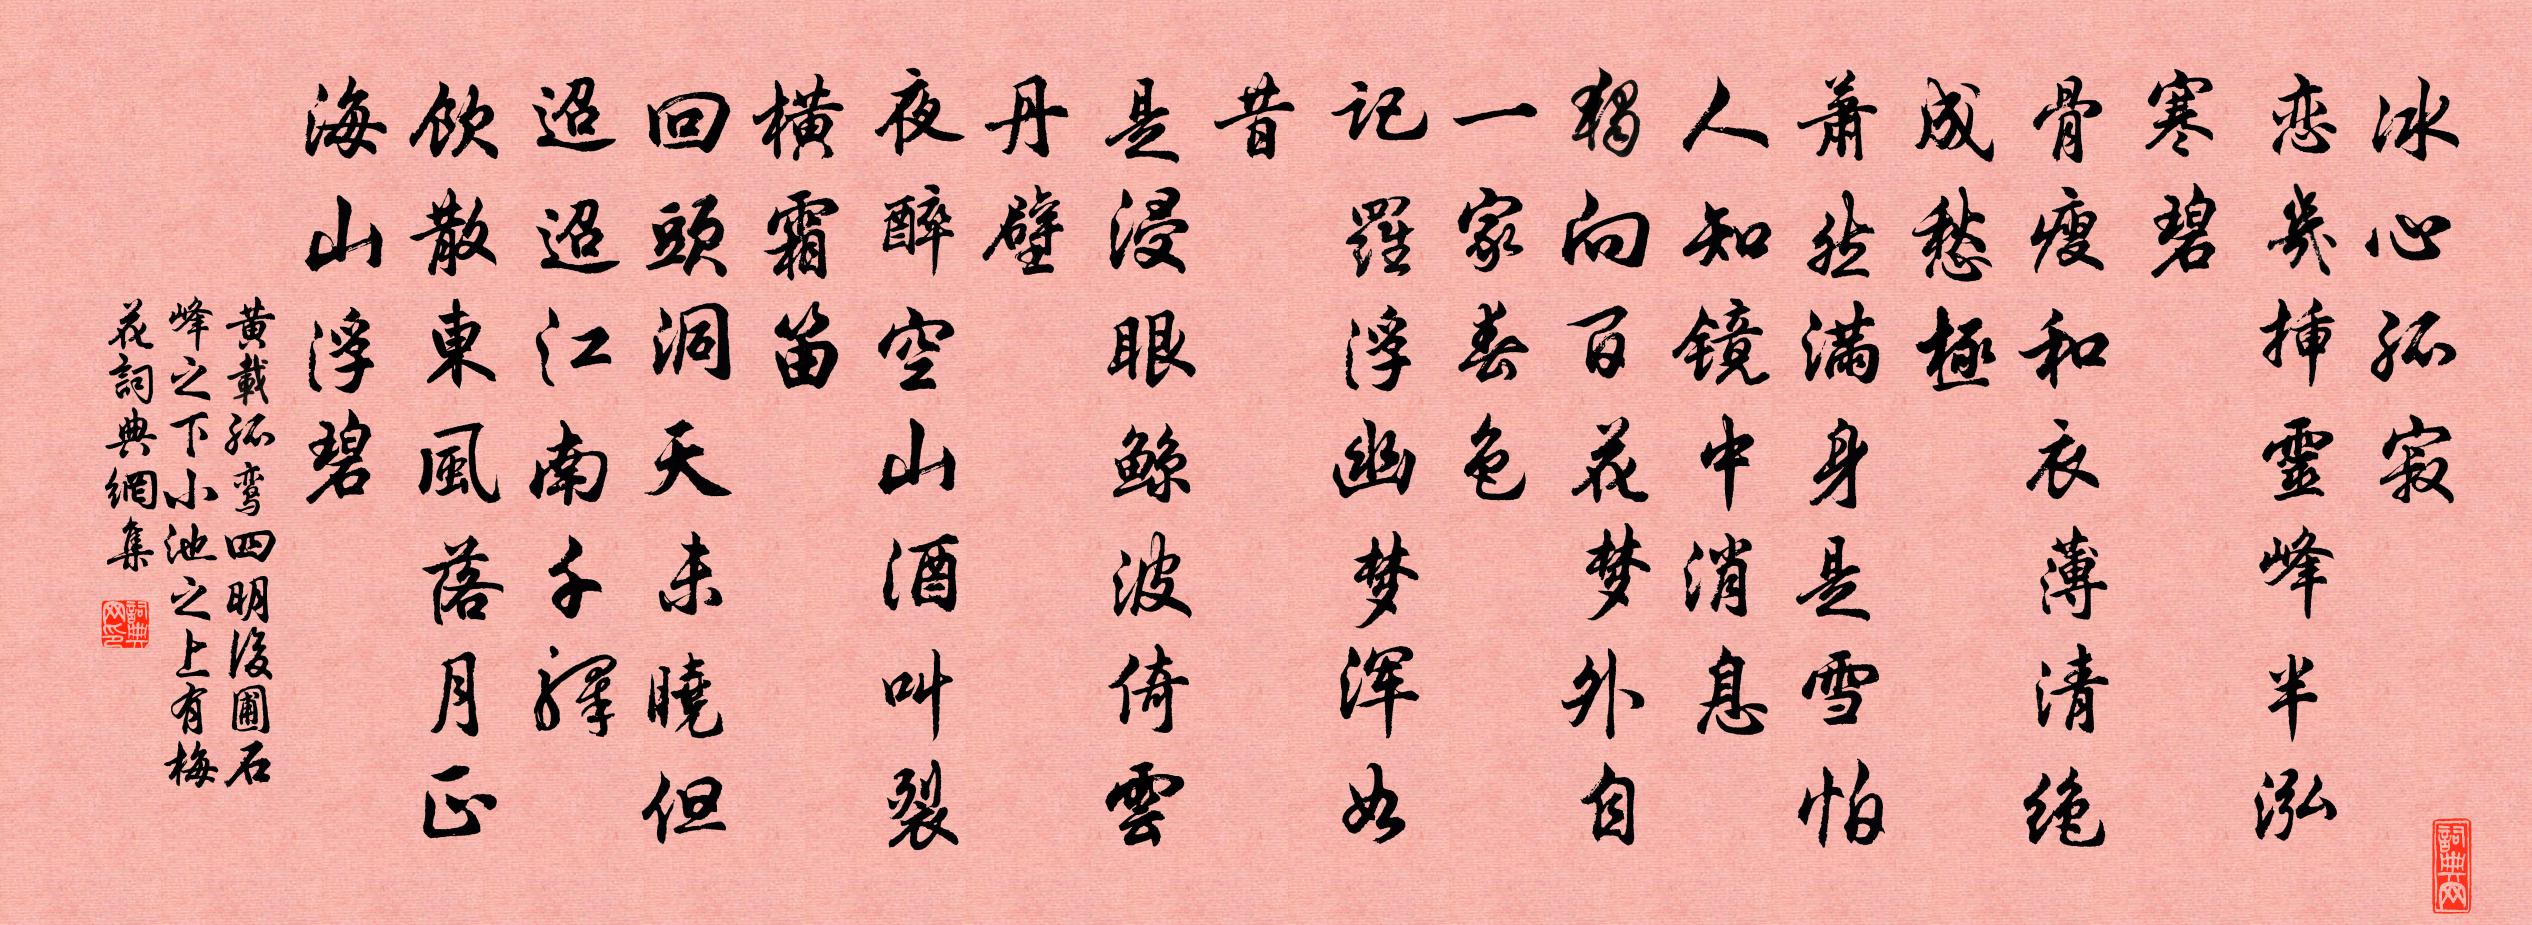 冰心孤寂
恋幾挿靈峰半泓
寒碧
骨瘦和衣薄清绝
成愁極
萧然滿身是雪怕
人知镜中消息
獨向百花梦外自
一家春色
记羅浮幽梦浑如
昔
是浸眼鲸波倚雲
丹壁
夜醉空山酒叫裂
横霜笛
回頭洞天未曉但
迢迢江南千驛
飲散東風落月正
海山浮碧
黄載孤鸾四明後圃石
峰之下小池之上有梅
花詞典網集
詞典网印
詞典网